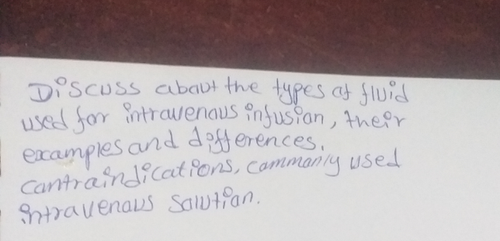 Discuss about the types of fluid
used for intravenous infusion, their
examples and differences.
contraindications, commonly used
intravenous solution.